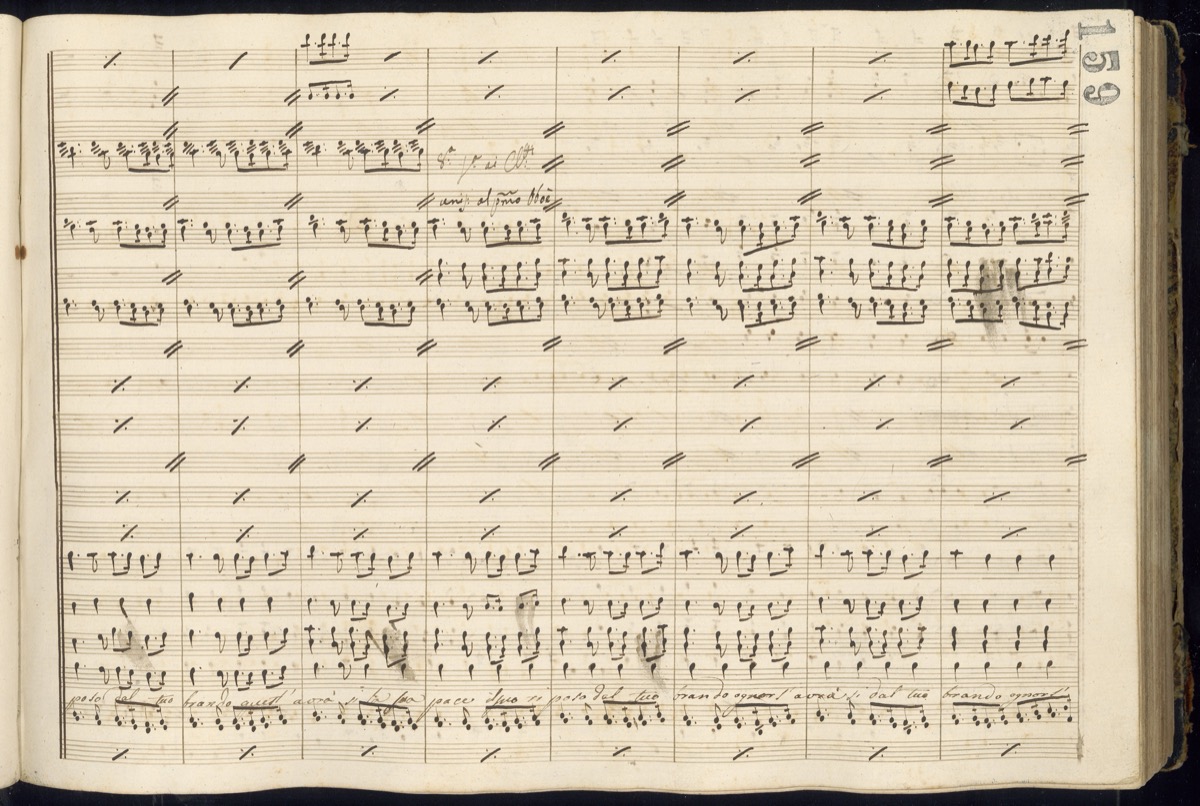 159
8ª pª al Cltt
unis al pmo Oboè
poso dal tuo brando avrà si sua pace il suo ri poso dal tuo brando ognor s'avrà si dal tuo brando ognor s'